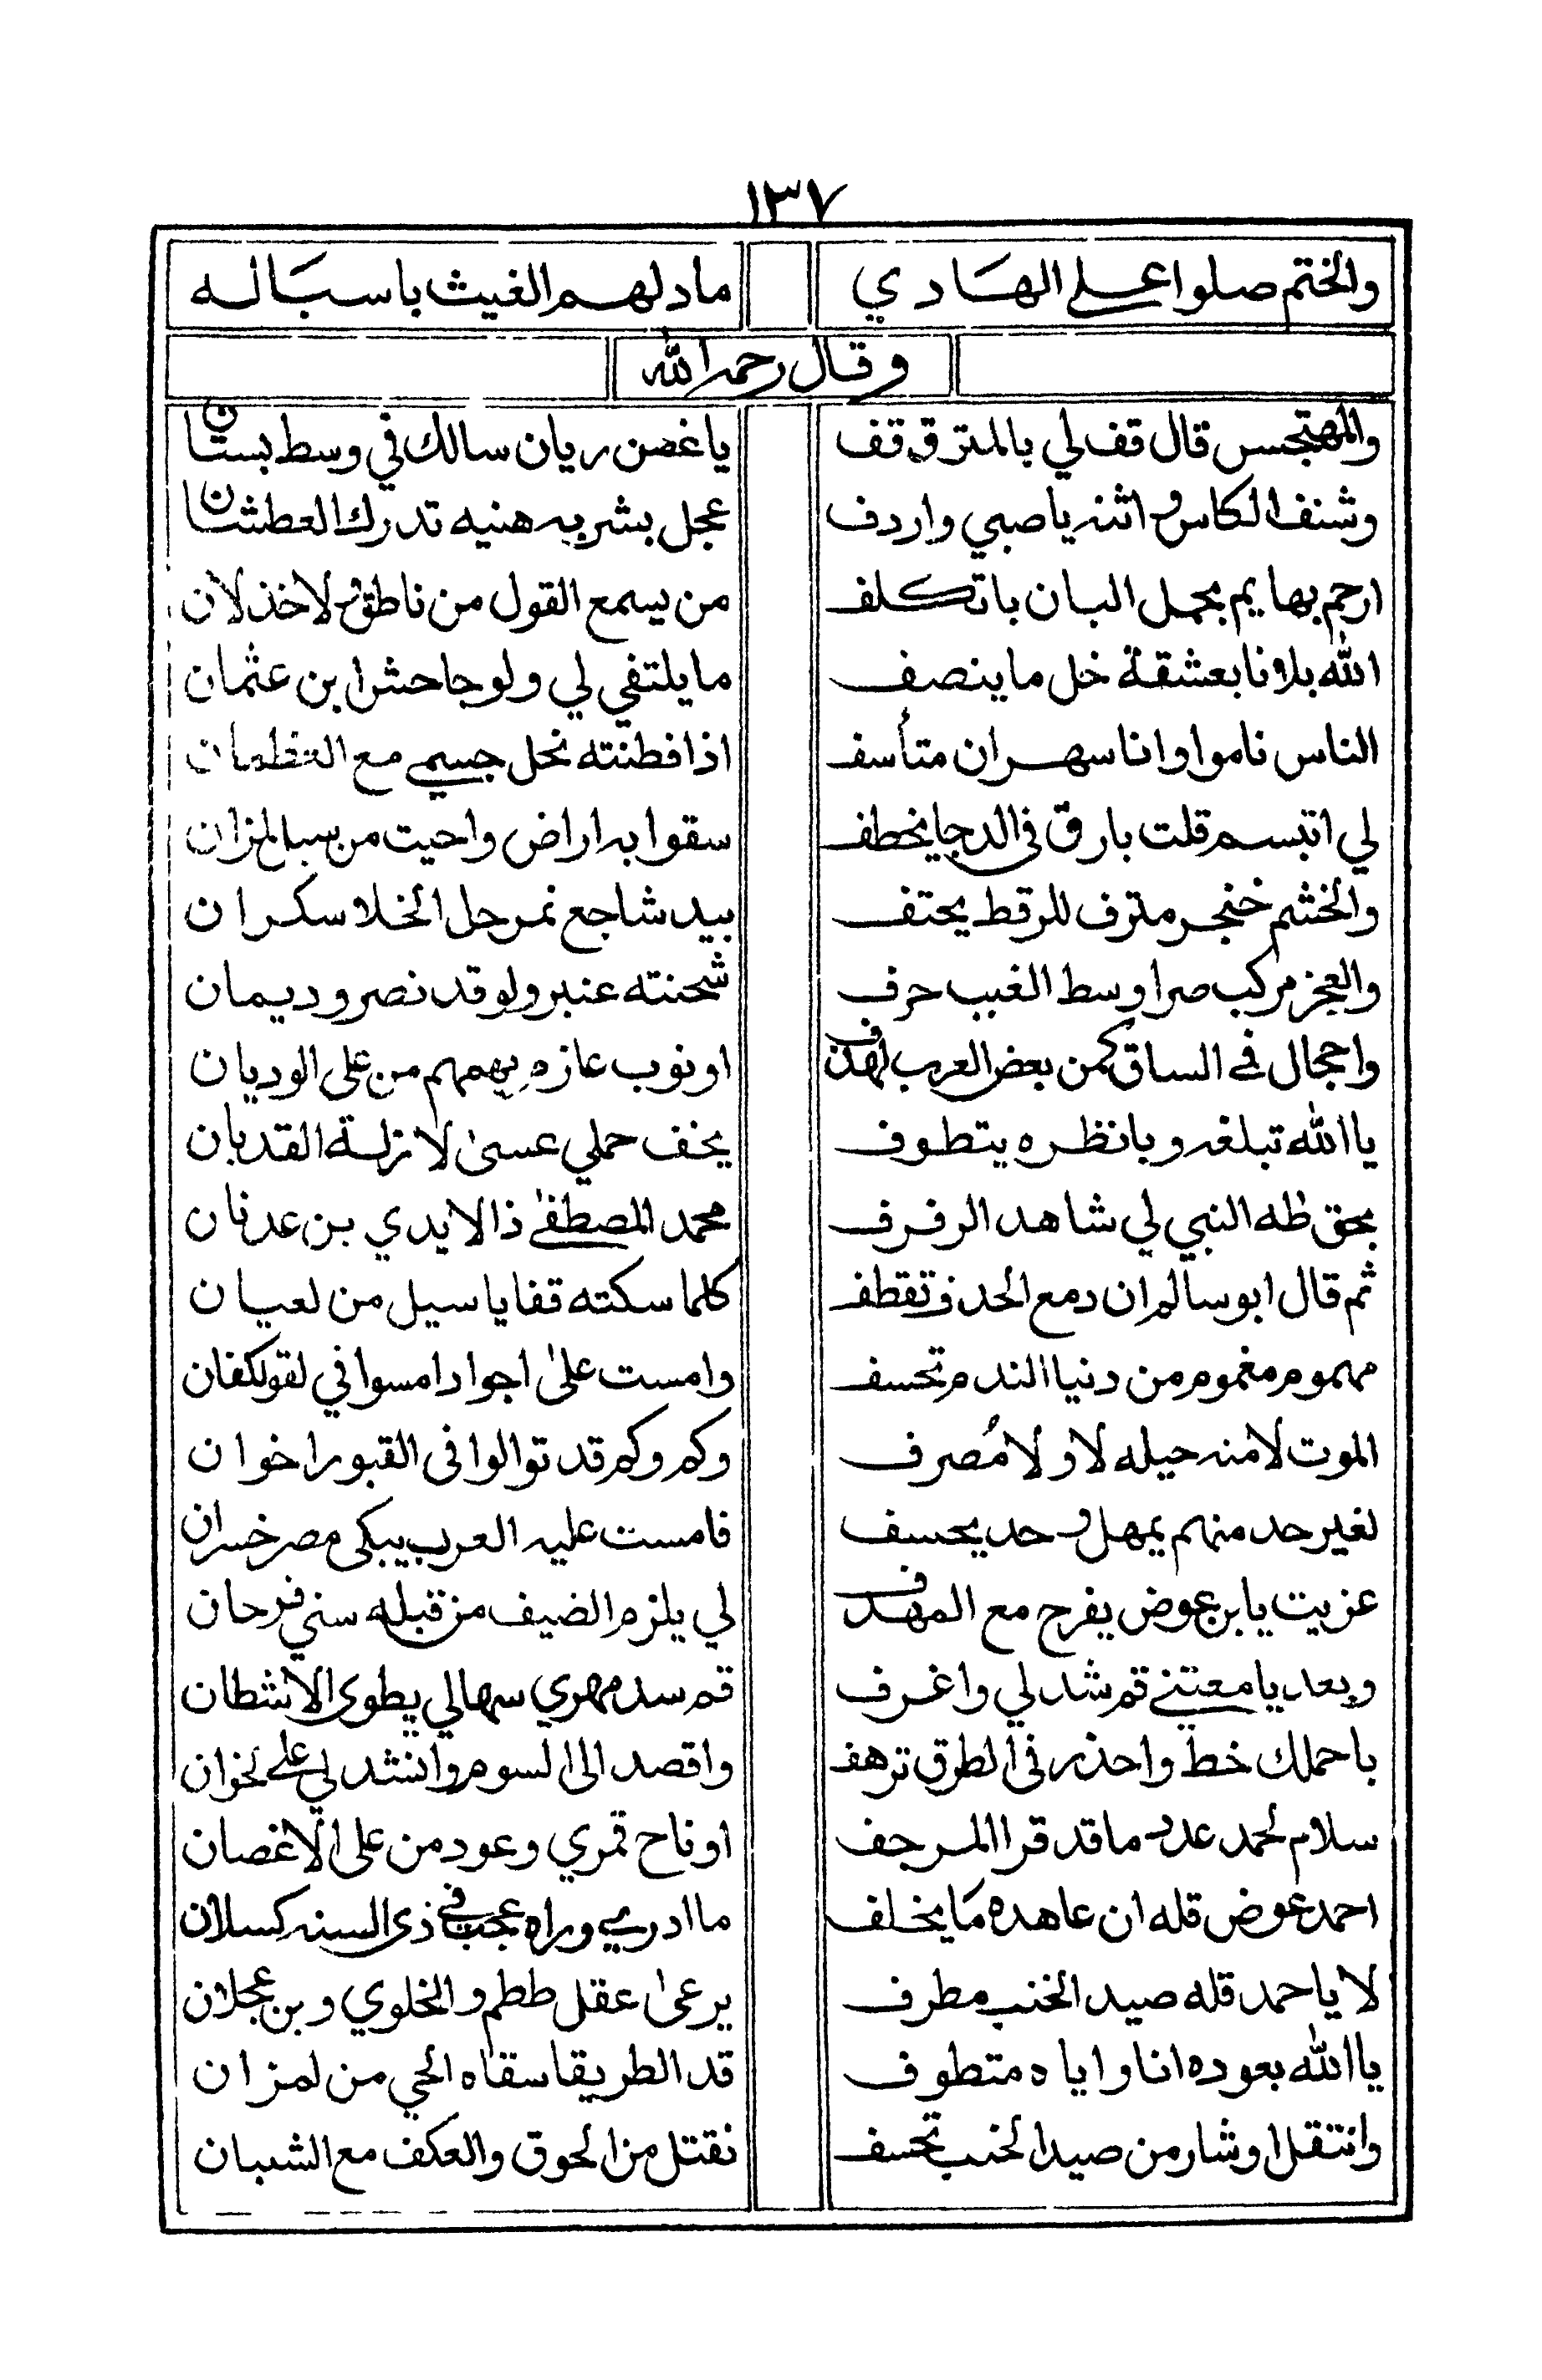 ١٣٧
والختم صلوا على الهادي مادلهم الغيث باسباله
وقال رحمه الله
والمهتجس قال قف لي بالمترق قف ياغصن ريان سالك في وسط بستان
وشنف الكاس واثنه ياصبي واردف عجل بشربه هنيه تدرك العطشان
ارحم بهايم بجمل البان باتكلف من يسمع القول من ناطق لاخذلان
الله بلانا بعشقة خل ماينصف مايلتفي لي ولوجا حشر ابن عثمان
الناس ناموا وانا سهران متأسف اذا فطنته نحل جسمي مع العظمان
لي اتبسم قلت بارق في الدجا يخطف سقوا به اراض واحيت من المزان
والخشم خنجر مترف للرقط يحتف بيد شاجع نمر حل الخلا سكران
والعجز مركب صرا وسط الغبب حرف شحنته عنبر ولوقد نصر وديمان
واحجال في الساق كمن بعض العرب لهدف اونوب عازه يهمهم من على الوديان
يا الله تبلغه وبانظره يتطوف يخف حملي عسى لا زلة القدبان
بحق طه النبي لي شاهد الرفرف محمد المصطفى ذا لايدي بن عدنان
ثم قال ابوسالم ان دمع الحدف تقطف كلما سكته قفايا سيل من لعيان
مهموم مغموم من دنيا الندم تحسف وامست على اجواد امسوا في لفولكفان
الموت لامنه حيله لا ولا مُصرف وكم وكم قد توالوا في القبور اخوان
لغير حد منهم يمهل وحد يحسف فامست عليه العرب يبكي مصر خسران
عزيت يابن عوض يفرح مع المهدف لي يلزم الضيف من قبله سني فرحان
وبعد يا معتني قم شد لي واغرف قم سد مهري سهالي يطوى الاشطان
باحملك خط واحذر في الطرق ترهف واقصد الى السوم وانشد لي على لخوان
سلام لحمد عدد ماقد قرا المرجف اوناح قمري وعود من على الاغصان
احمد عوض قله ان عاهده مَا يخلف ما ادري وراه عجب في ذي السنه كسلان
لا ياحمد قله صيد الخنب مطرف يرعى عقل ططم والخلوي وبن عجلان
يا الله بعوده انا واياه متطوف قد الطريقا سقاه الحي من لمزان
وانتقل اوشار من صيد الخنب تحسف نقتل من الحوق والعكف مع الشبان